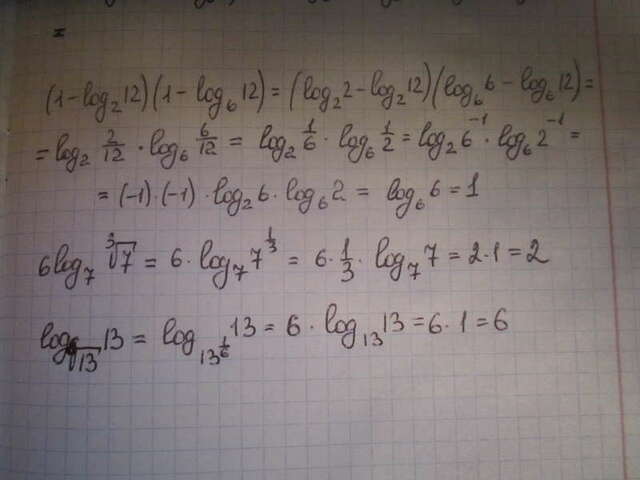 (1-log₂12)(1-log₆12) = (log₂2-log₂12)(log₆6-log₆12) =
= log₂ 2/12 · log₆ 6/12 = log₂ 1/6 · log₆ 1/2 = log₂6⁻¹ · log₆2⁻¹ =
= (-1)·(-1)·log₂6·log₆2 = log₆6 = 1
6log₇ ∛7 = 6·log₇7^(1/3) = 6·1/3·log₇7 = 2·1 = 2
log_(⁶√13) 13 = log_(13^(1/6)) 13 = 6·log₁₃13 = 6·1 = 6